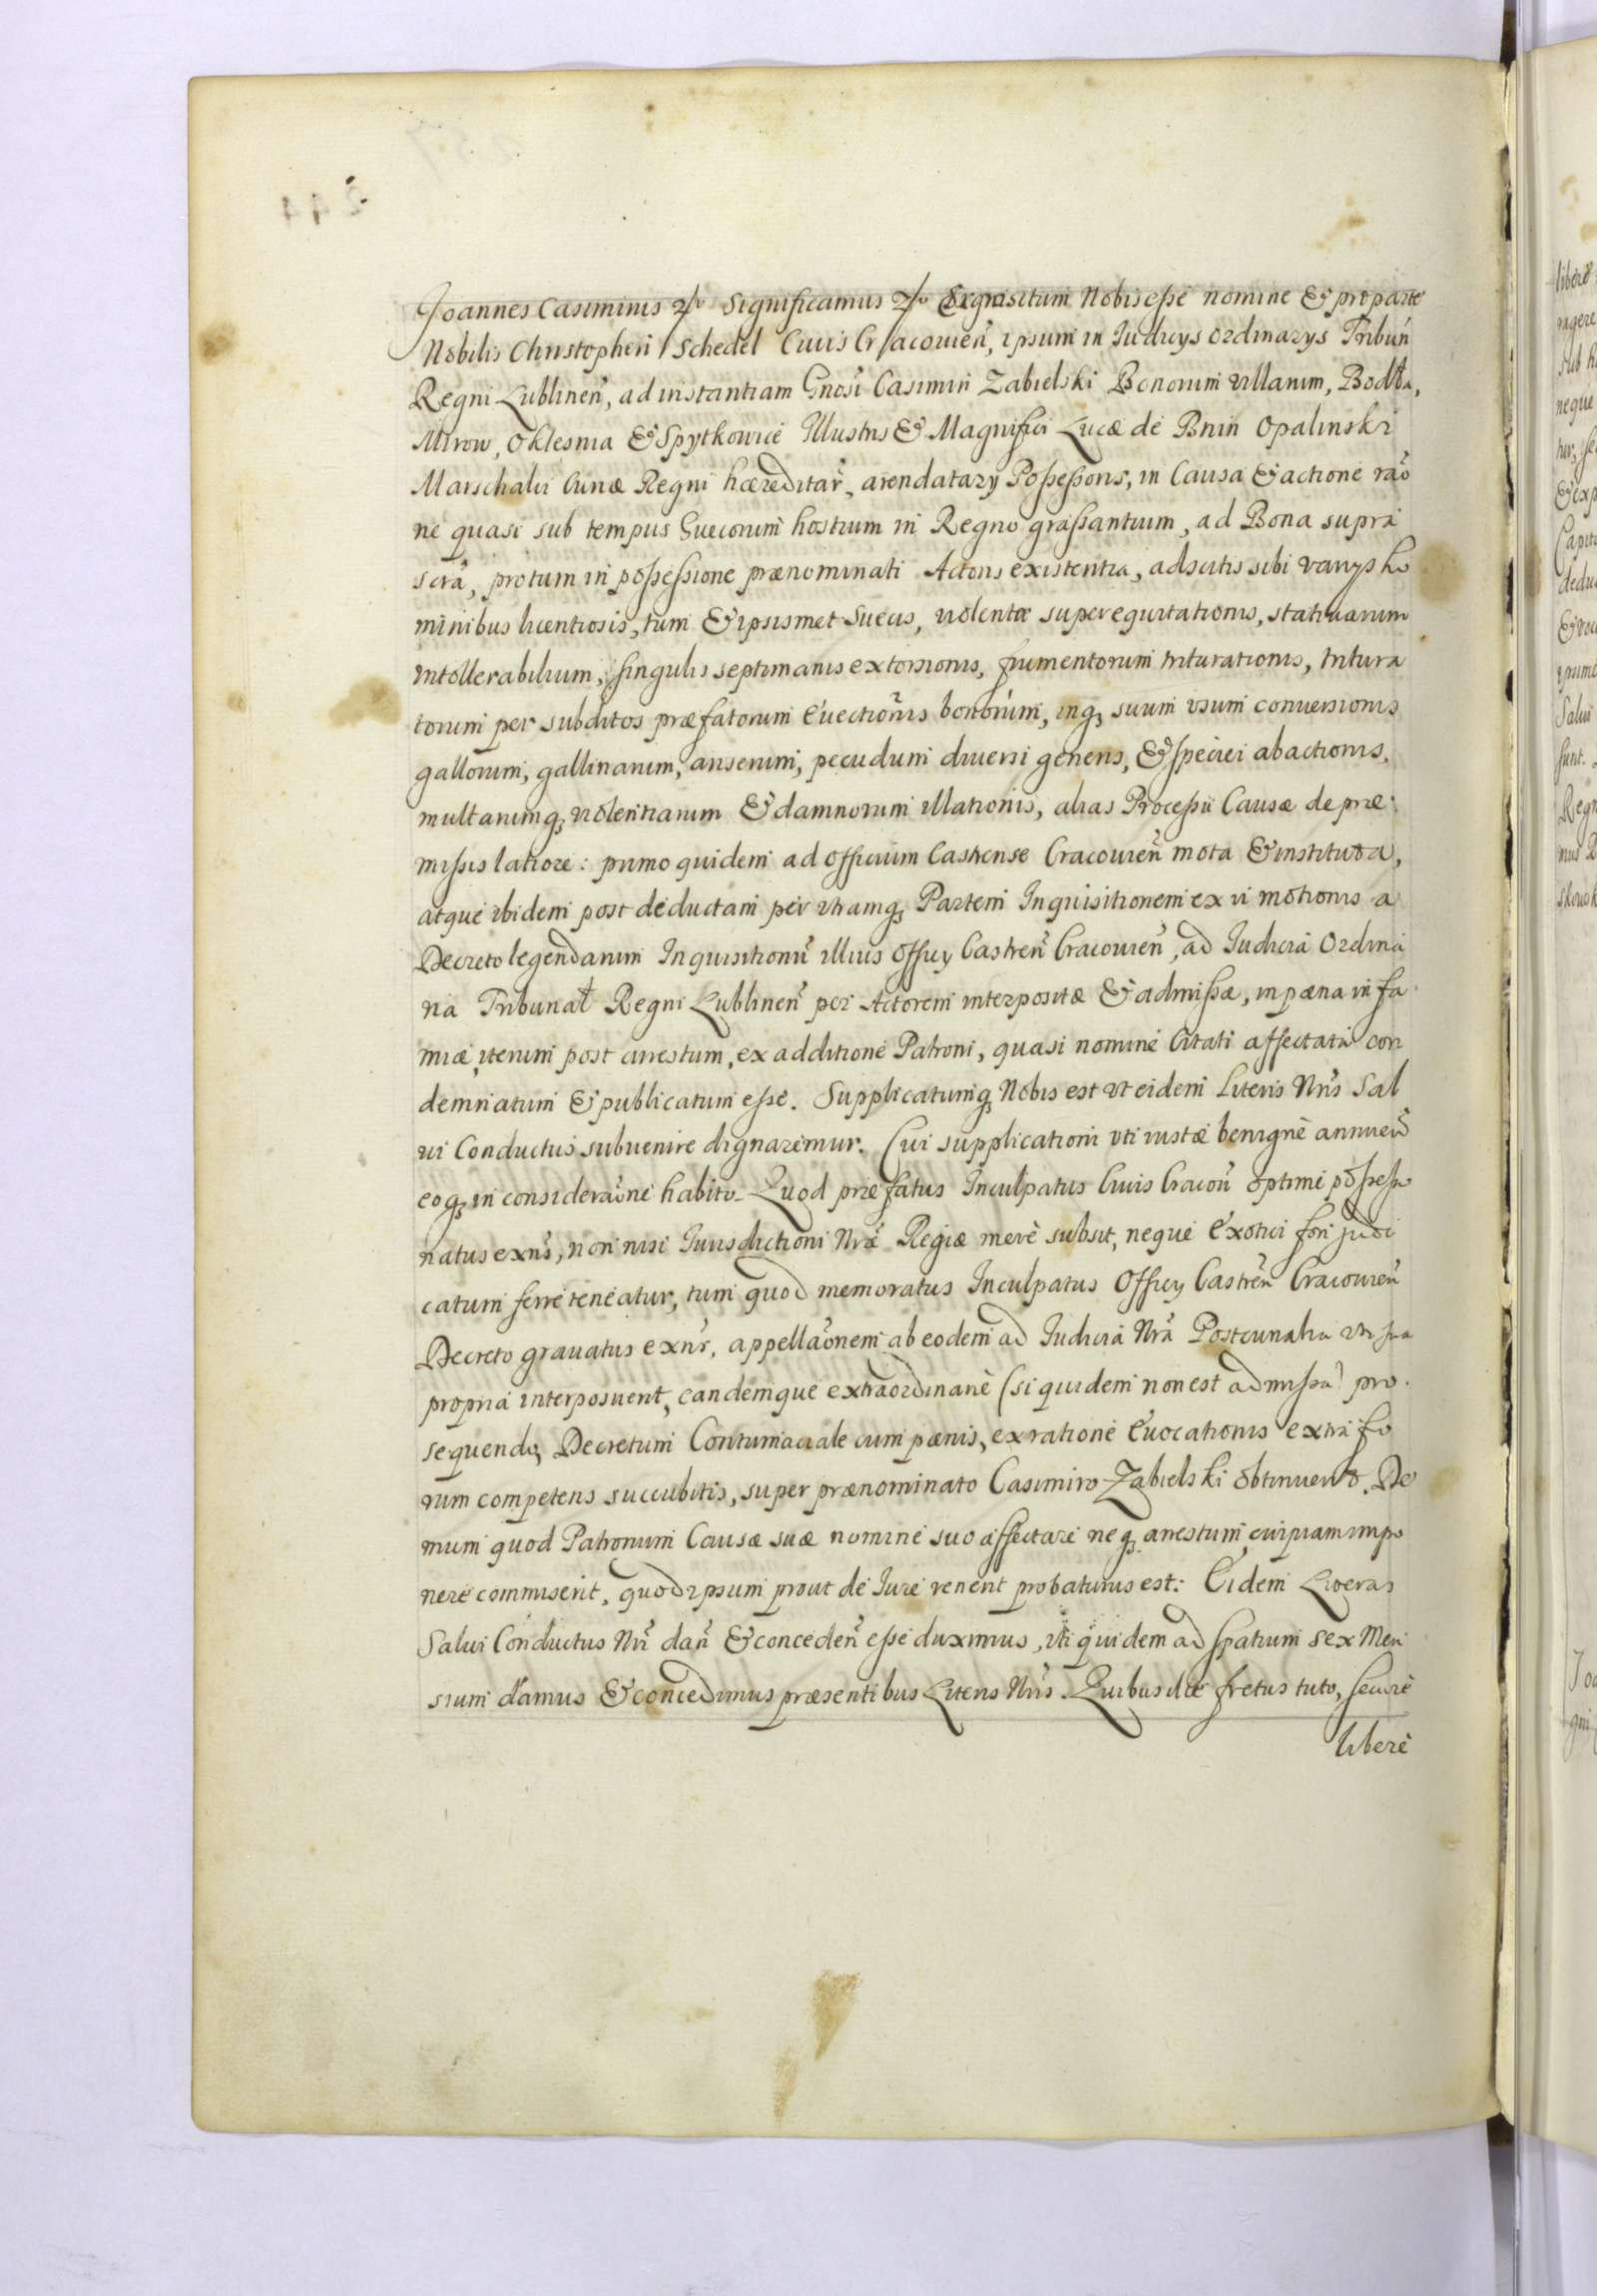 Joannes Casimirus &c Significamus &c Exquisitum Nobis esse nomine & pro parte
Nobilis Christopheri Schedel Ciuis Cracouieñ, ipsum in Iudicys ordinarys Tribuñ
Regni Lublineñ, ad instantiam Gnosi Casimiri Zabielski Bonorum villarum,
Mirow, Oklesnia & Spytkowice Illustris & Magnifici Lucæ de Bnin Opalinski
Marschalci Curiæ Regni hæreditar̃, arendatarÿ Possessoris, in Causa & actione rão
ne quasi sub tempus Suecorum hostium in Regno grassantium, ad Bona supra
scrã, pro tum in possessione prænominati Actoris existentia, adscitis sibi varÿs ho
minibus licentiosis, tum & ipsismet Suecis, violentæ superequitationis, statiuarum
intollerabilium, singulis septimanis extorsionis, frumentorum triturationis, tritura
torum per subditos præfatorum Euectionis bonorum, inq; suum vsum conuersionis
gallorum, gallinarum, anserum, pecudum diuersi generis, & speciei abactionis,
multarumq; violentiarum & damnorum illationis, alias Processu Causæ de præ:
missis latiore: primo quidem ad officium Castrense Cracouieñ mota & instituta,
atque ibidem post deductam per vtramq; Partem Inquisitionem ex vi motionis a
Decreto legendarum Inquisitionũ illius Officÿ Castreñ Cracouieñ, ad Iudicia Ordina
ria Tribunał Regni Lublineñ per Actorem interpositæ & admissæ, in pæna infa
miæ, iterum post arrestum, ex additione Patroni, quasi nomine Citati affectata con
demnatum & publicatum esse. Supplicatumq; Nobis est vt eidem Literis Nrĩs Sal
ui Conductus subuenire dignaremur. Cui supplicationi vti iustæ benignè annuen̄
eoq; in considerãone habito. Quod præfatus Inculpatus Ciuis Cracoũ optimè possessio
natus exñs, non nisi Iurisdictioni Nrã Regiæ merè subsit, neque Exotici fori judi
catum ferre teneatur, tum quod memoratus Inculpatus Officÿ Castreñ Cracouieñ
Decreto grauatus exñs, appellãonem ab eodem ad Iudicia Nrã Postcurialia
propria interposuerit, eandemque extraordinariè (si quidem non est admissa) pro
sequendo, Decretum Contumaciale cum pænis, ex ratione Euocationis extra fo
rum competens succubitis, super prænominato Casimiro Zabielski obtinuerit. De
mum quod Patronum Causæ suæ nomine suo affectare neq; arrestum cuipiam impo
nere commiserit, quod ipsum prout de Iure venerit probaturus est: Eidem Literas
Salui Conductus Nrĩ dañ & concedeñ esse duximus, vti quidem ad spatium sex Men
sium damus & concedimus præsentibus Literis Nrĩs. Quibus ille fretus tuto, securè
liberè